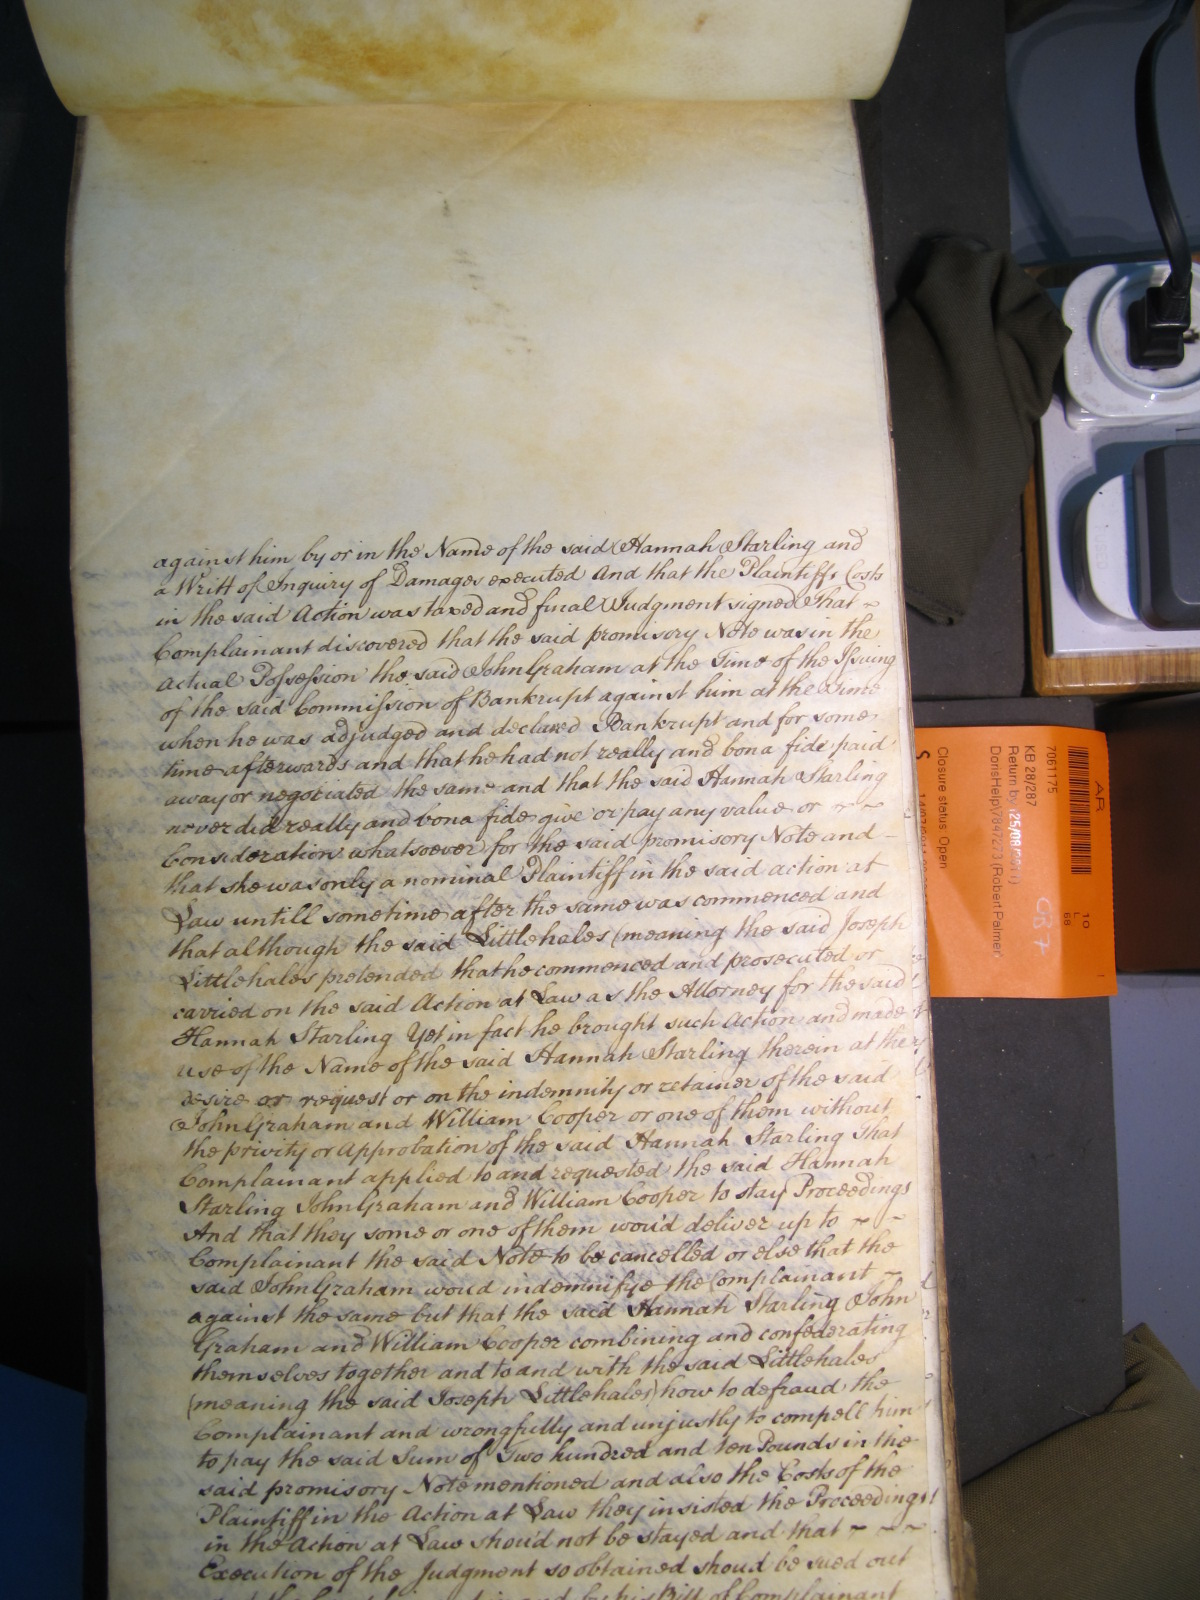 against him by or in the Name of the said Hannah Starling and
a Writt of Inquiry of Damages executed And that the Plaintiffs Costs
in the said Action was taxed and final Judgment signed That ~
Complainant discovered that the said promisory Note was in the
actual Possession the said John Graham at the Time of the Issuing
of the said Commission of Bankrupt against him at the Time
when he was adjudged and declared Bankrupt and for some
time afterwards and that he had not really and bona fide paid
away or negotiated the same and that the said Hannah Starling
never did really and bona fide give or pay any value or ~ ~
Consideration whatsoever for the said promisory Note and -
that she was only a nominal Plaintiff in the said action at
Law untill sometime after the same was commenced and
that although the said Littlehales (meaning the said Joseph
Littlehales pretended that he commenced and prosecuted or
carried on the said Action at Law as the Attorney for the said
Hannah Starling Yet in fact he brought such Action and made
use of the Name of the said Hannah Starling therein at the
desire or request or on the indemnity or retainer of the said
John Graham and William Cooper or one of them without
the privity or Approbation of the said Hannah Starling That
Complainant applied to and requested the said Hannah
Starling John Graham and William Cooper to stay Proceedings
And that they some or one of them wou'd deliver up to ~ -
Complainant the said Note to be cancelled or else that the
said John Graham woud indemnifye the Complainant ~
against the same but that the said Hannah Starling John
Graham and William Cooper combining and confederating
themselves together and to and with the said Littlehales
(meaning the said Joseph Littlehales) how to defraud the
Complainant and wrongfully and unjustly to compell him
to pay the said Sum of Two hundred and ten Pounds in the
said promisory Note mentioned and also the Costs of the
Plaintiff in the Action at Law they insisted the Proceedings
in the Action at Law shou'd not be stayed and that ~ ~ ~
Execution of the Judgment so obtained shoud be sued out
and by his Bill of Complainant
AR
7061175
KB 28/287
Return by (25/08/2011)
DorisHelp\7847273 (Robert Palmer
Closure status: Open
S
10
L
68